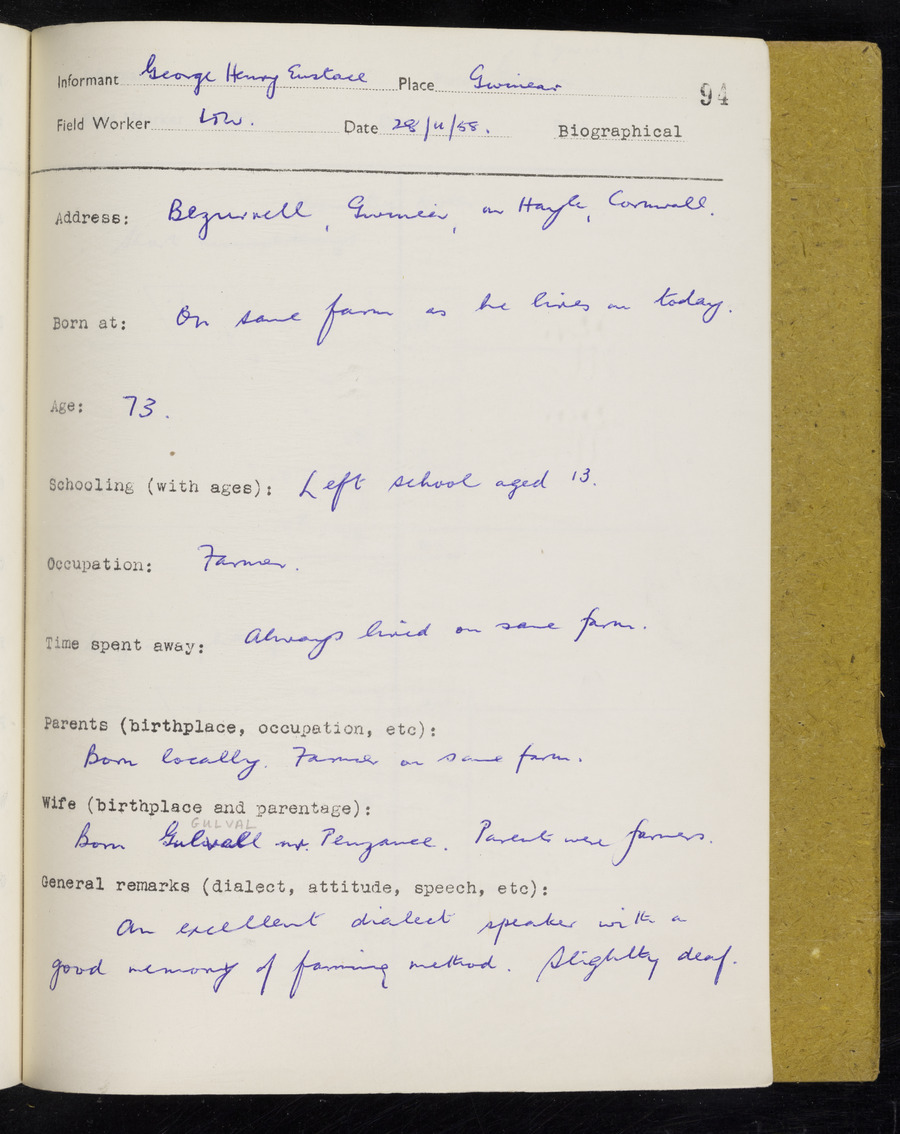 Informant George Henry Eustace Place Gwinear 94
Field Worker Date 28/11/58. Biographical
Address: Bezurrell, Gwinear, nr Hayle, Cornwall.
Born at: On same farm as he lives on today.
Age: 73.
Schooling (with ages): Left school aged 13.
Occupation: Farmer.
Time spent away: Always lived on same farm.
Parents (birthplace, occupation, etc):
Born locally. Farmer on same farm.
Wife (birthplace and parentage):
GULVAL
Born Gulvall nr. Penzance. Parents were farmers.
General remarks (dialect, attitude, speech, etc):
An excellent dialect speaker with a
good memory of farming method. Slightly deaf.